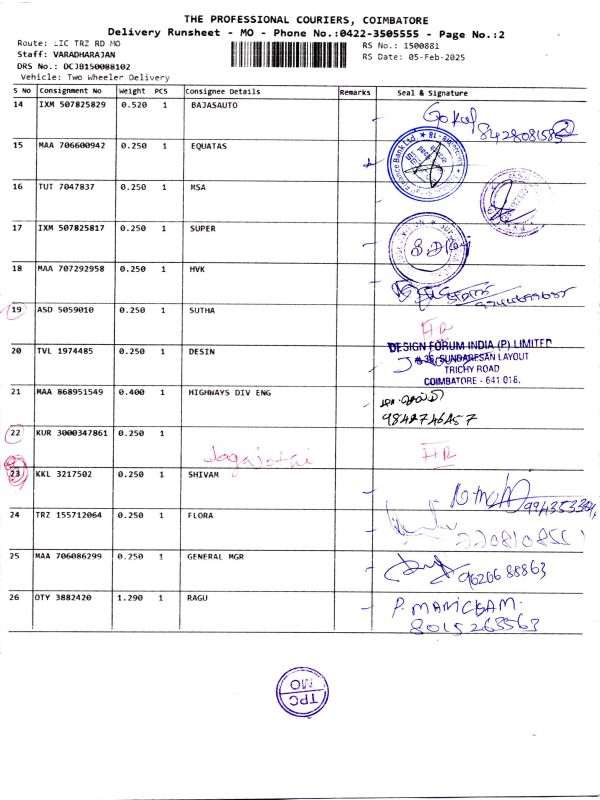 THE PROFESSIONAL COURIERS, COIMBATORE
Delivery Runsheet - MO - Phone No.:0422-3505555 - Page No.:2
Route: LIC TRZ RD MO RS No.: 1500881
Staff: VARADHARAJAN RS Date: 05-Feb-2025
DRS No.: DCJB150088102
Vehicle: Two Wheeler Delivery
S No Consignment No Weight PCS Consignee Details Remarks Seal & Signature
14 IXM 507825829 0.520 1 BAJASAUTO
15 MAA 706600942 0.250 1 EQUATAS
16 TUT 7047837 0.250 1 MSA
17 IXM 507825817 0.250 1 SUPER
18 MAA 707292958 0.250 1 HVK
19 ASD 5059010 0.250 1 SUTHA
20 TVL 1974485 0.250 1 DESIN
DESIGN FORUM INDIA (P) LIMITED
# 36, SUNDARESAN LAYOUT
TRICHY ROAD
COIMBATORE - 641 018.
21 MAA 868951549 0.400 1 HIGHWAYS DIV ENG
9842746457
22 KUR 3000347861 0.250 1
23 KKL 3217502 0.250 1 SHIVAM
24 TRZ 155712064 0.250 1 FLORA
25 MAA 706086299 0.250 1 GENERAL MGR
9626688863
26 OTY 3882420 1.290 1 RAGU
P. MANICKAM.
8015263563
TPC
MO